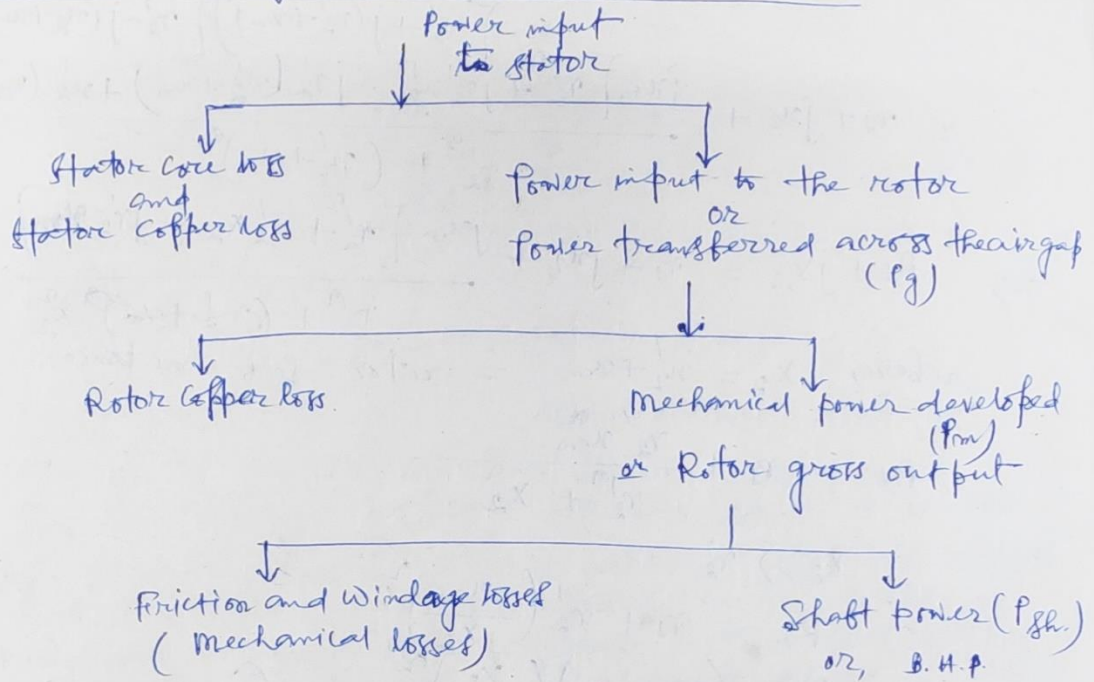 Power input
to stator
Stator core loss
and
Stator copper loss
Power input to the rotor
or
Power transferred across the airgap
(Pg)
Rotor copper loss
Mechanical power developed
(Pm)
or Rotor gross output
Friction and Windage losses
(Mechanical losses)
Shaft power (Psh.)
or, B.H.P.